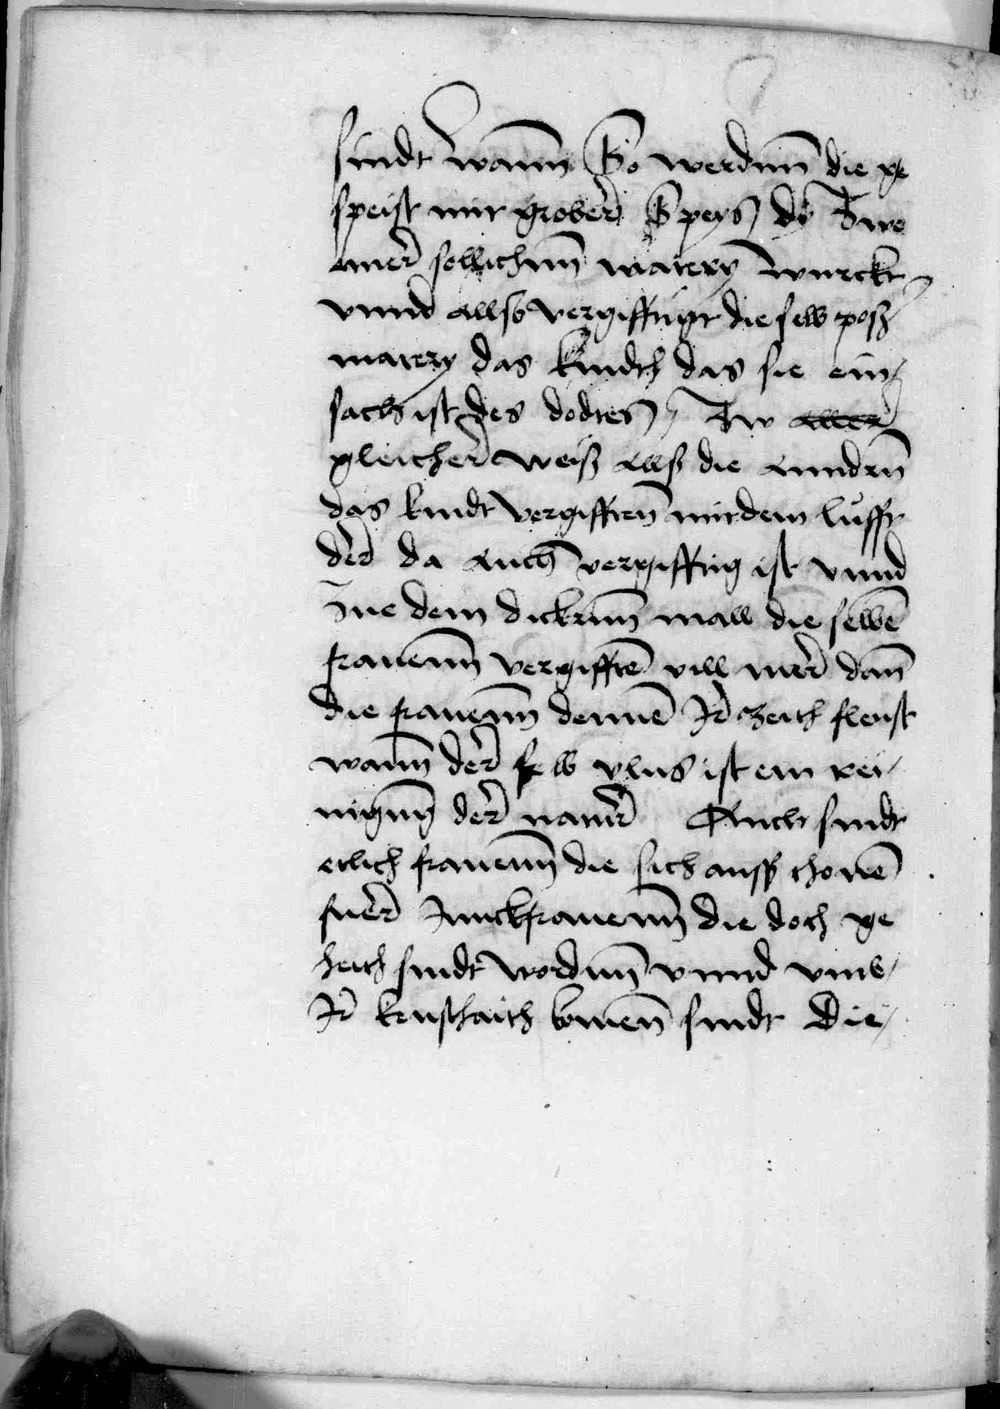 sindt wann So werdnn die ge
speist mit grober Speys die Zwe
einer sollichnn matery wurckt
vnnd allso vergifftigt die selb poß
matery das kindth das sie ein
sach ist des dodtes / Zw aller
gleicher weiß allß die anndrn
das kindt vergifften mit dem lufft
der da auch vergifftig ist vnnd
Zue dem dickrnn mall die selben
frauenn vergifften vill mer dann
die frauenn dennen Ir Zeith fleust
wann der selb vlus ist ein rei¬
nigung der natur Auch sindt
etlich frauenn die sich auss thonn
fuer Junckfrauenn die doch ge
heith sindt wordnn vnnd vmb
Ir keuschaith komenn sindt Die